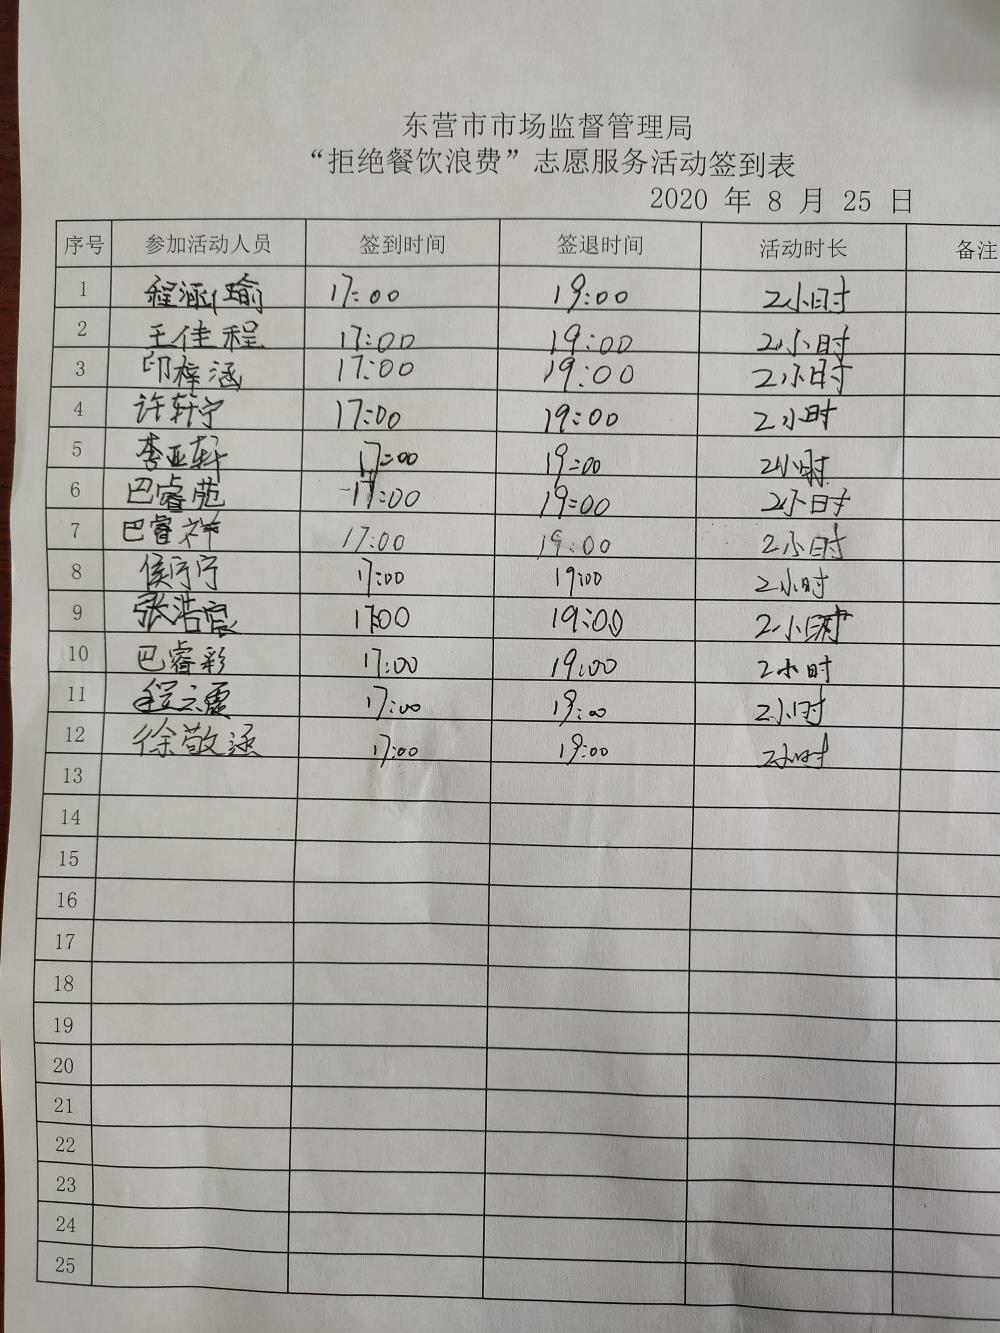 东营市市场监督管理局
“拒绝餐饮浪费”志愿服务活动签到表
2020 年 8 月 25 日
序号 参加活动人员 签到时间 签退时间 活动时长 备注
1 程涵瑜 17:00 19:00 2小时
2 王佳程 17:00 19:00 2小时
3 印梓涵 17:00 19:00 2小时
4 许轩宁 17:00 19:00 2小时
5 李亚轩 17:00 19:00 2小时
6 巴睿苑 17:00 19:00 2小时
7 巴睿祥 17:00 19:00 2小时
8 17:00 19:00 2小时
9 张浩宸 17:00 19:00 2小时
10 巴睿彩 17:00 19:00 2小时
11 程云霞 17:00 19:00 2小时
12 徐敬涵 17:00 19:00 2小时
13
14
15
16
17
18
19
20
21
22
23
24
25